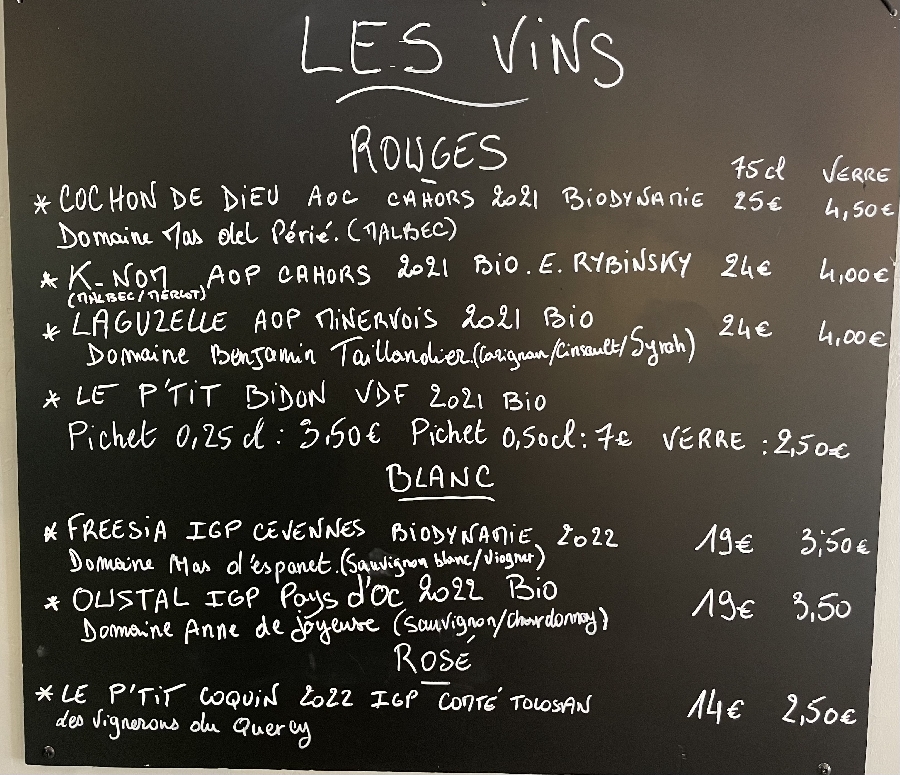 LES ViNS
ROUGES
75cl VERRE
* COCHON DE DiEU AOC CAHORS 2021 BiODYNAMiE 25€ 4,50€
Domaine Mas del Périé. (MALBEC)
* K-NOM AOP CAHORS 2021 BiO. E. RYBiNSKY 24€ 4,00€
(MALBEC/MERLOT)
* LAGUZELLE AOP MiNERVOiS 2021 BiO 24€ 4,00€
Domaine Benjamin Taillandier. (Carignan/Cinsault/Syrah)
* LE P'TiT BiDON VDF 2021 BiO
Pichet 0,25cl : 3,50€ Pichet 0,50cl : 7€ VERRE : 2,50€
BLANC
* FREESiA IGP CÉVENNES BiODYNAMiE 2022 19€ 3,50€
Domaine Mas d'espanet. (Sauvignon blanc/Viogner)
* OUSTAL IGP Pays d'Oc 2022 BiO 19€ 3,50
Domaine Anne de joyeuse (Sauvignon/Chardonnay)
ROSÉ
* LE P'TiT COQUiN 2022 IGP COMTÉ TOLOSAN 14€ 2,50€
des Vignerons du Quercy